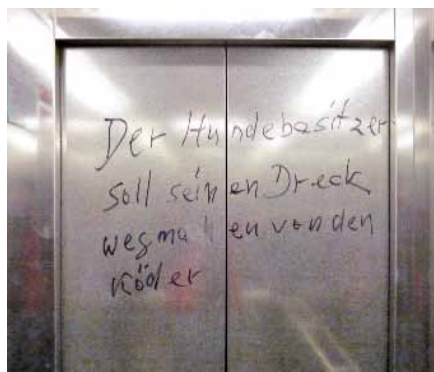 Der Hundebasitzer
soll seinen Dreck
wegmahen von den
Köder